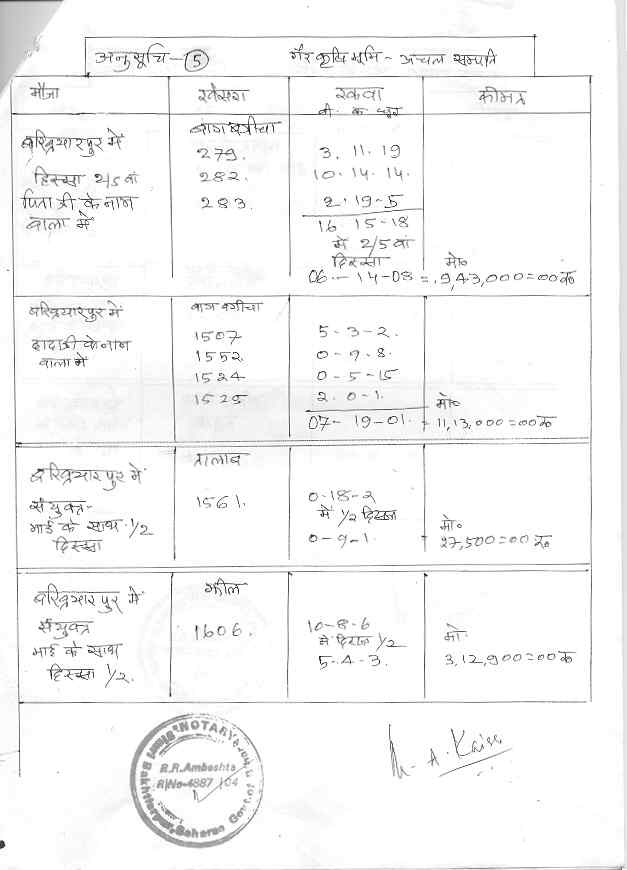 अनुसूचि-5 गैर कृषि भूमि - अचल सम्पति
मौजा खेसरा रकवा कीमत
बी. क. धूर
बाग बगीचा
बख्तियारपुर में 279. 3. 11. 19
हिस्सा 2/5 वां 282. 10. 14. 14.
पिता श्री के नाम 283. 2. 19-5
वाला में 16. 15-18
में 2/5 वां
हिस्सा मो०
06-14-08 = 9,43,000=00 रु
बख्तियारपुर में बाग बगीचा
1507 5-3-2.
दादा श्री के नाम 1552. 0-9-8.
वाला में 1524 0-5-15
1525 2.0-1. मो०
07-19-01. - 11,13,000=00 रु
तालाब
बख्तियारपुर में
संयुक्त- 1561. 0-18-2
भाई के साथ 1/2 में 1/2 हिस्सा मो०
हिस्सा 0-9-1. - 27,500=00 रु
झील
बख्तियारपुर में
संयुक्त 1606. 10-8-6
भाई के साथ में हिस्सा 1/2 मो०
हिस्सा 1/2. 5-4-3. 3,12,900=00 रु
NOTARY
R.R.Ambashta
R/No-4887/04
M. A. Kaiser